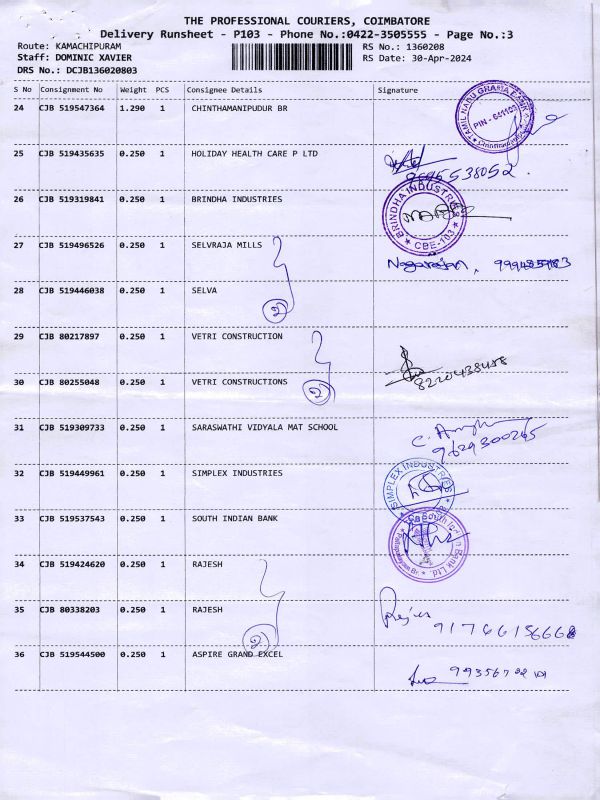 THE PROFESSIONAL COURIERS, COIMBATORE
Delivery Runsheet - P103 - Phone No.:0422-3505555 - Page No.:3
Route: KAMACHIPURAM RS No.: 1360208
Staff: DOMINIC XAVIER RS Date: 30-Apr-2024
DRS No.: DCJB136020803
S No Consignment No Weight PCS Consignee Details Signature
24 CJB 519547364 1.290 1 CHINTHAMANIPUDUR BR
TAMIL NADU GRAMA BANK
PIN - 641103
Chinthamani
25 CJB 519435635 0.250 1 HOLIDAY HEALTH CARE P LTD
26 CJB 519319841 0.250 1 BRINDHA INDUSTRIES
BRINDHA INDUSTRIES
CBE-103
27 CJB 519496526 0.250 1 SELVRAJA MILLS
Nagarajan,
28 CJB 519446038 0.250 1 SELVA
2
29 CJB 80217897 0.250 1 VETRI CONSTRUCTION
8220438458
30 CJB 80255048 0.250 1 VETRI CONSTRUCTIONS
2
31 CJB 519309733 0.250 1 SARASWATHI VIDYALA MAT SCHOOL
9629300265
32 CJB 519449961 0.250 1 SIMPLEX INDUSTRIES
SIMPLEX INDUSTRIES
33 CJB 519537543 0.250 1 SOUTH INDIAN BANK
South Indian Bank Ltd.
34 CJB 519424620 0.250 1 RAJESH
35 CJB 80338203 0.250 1 RAJESH
2
36 CJB 519544500 0.250 1 ASPIRE GRAND EXCEL